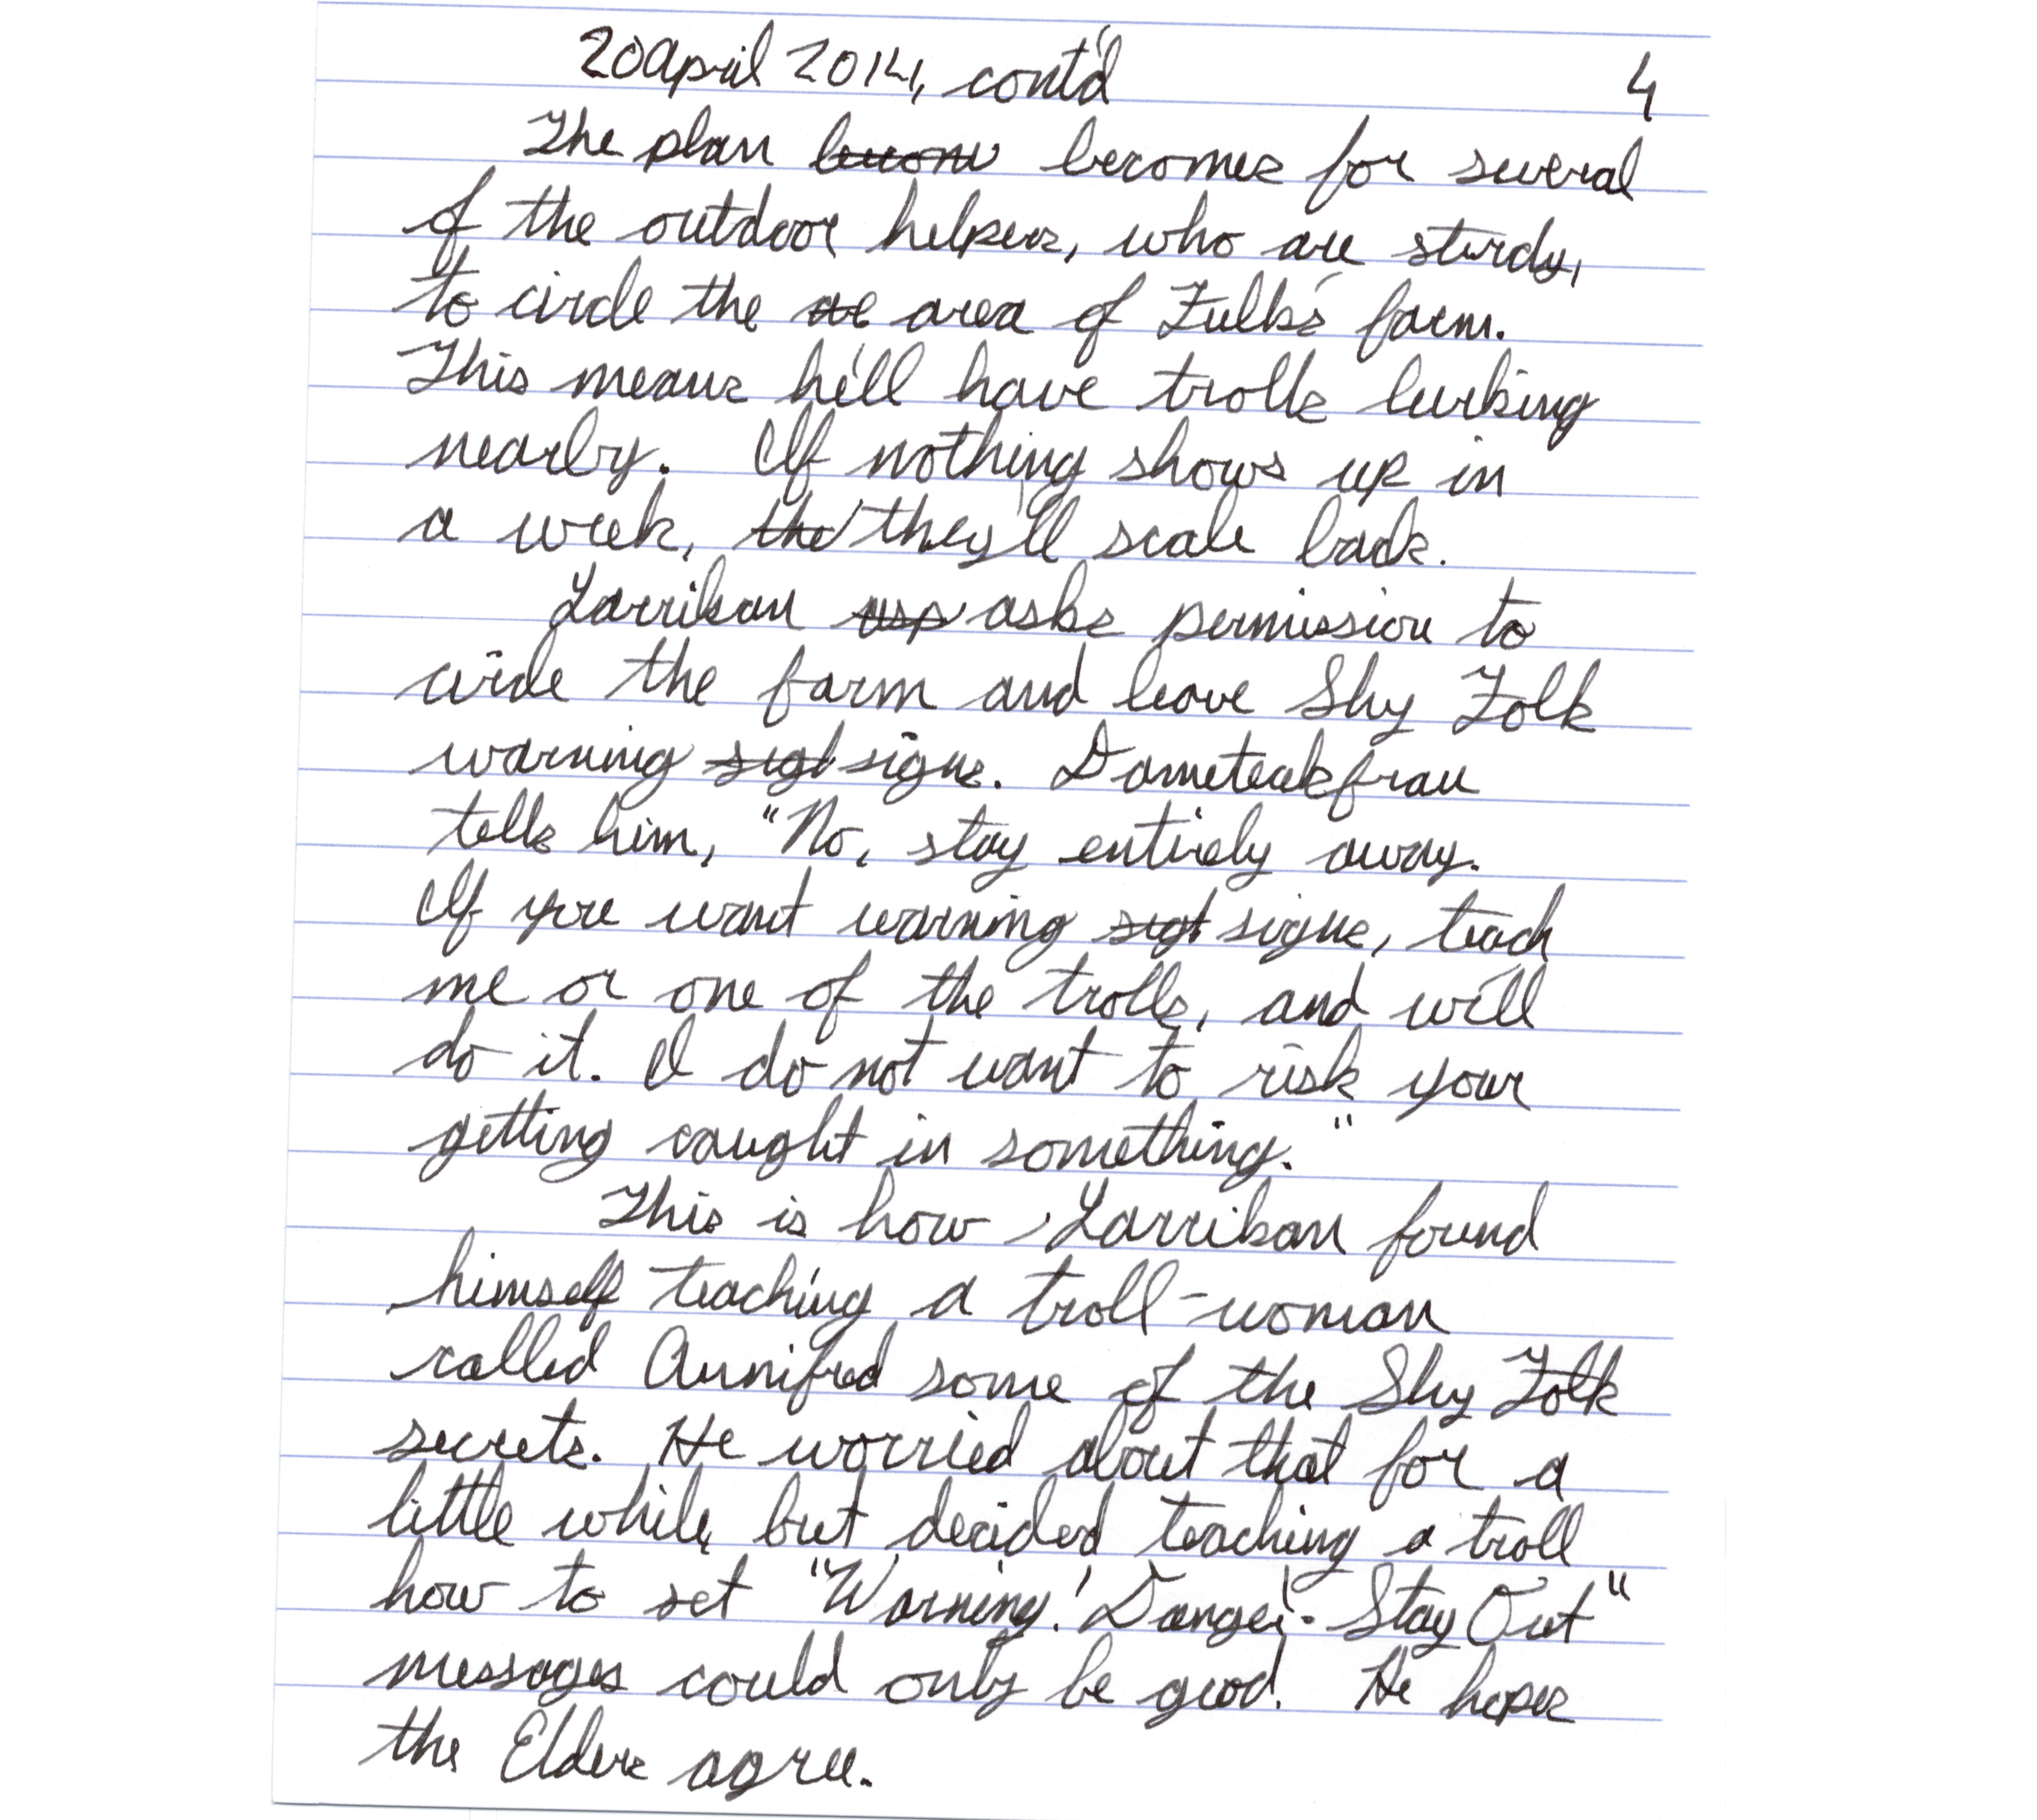 20 April 2014, cont'd 4
The plan becomes for several
of the outdoor helpers, who are sturdy,
to circle the area of Fulk's farm.
This means he'll have trolls lurking
nearby. If nothing shows up in
a week, the they'll scale back.
Larrikan asp asks permission to
circle the farm and leave Shy Folk
warning sigl signs. Dameteakfrau
tells him, "No, stay entirely away.
If you want warning sigl signs, teach
me or one of the trolls, and we'll
do it. I do not want to risk your
getting caught in something."
This is how Larrikan found
himself teaching a troll-woman
called Aunifred some of the Shy Folk
secrets. He worried about that for a
little while, but decided teaching a troll
how to set "Warning! Danger! Stay Out"
messages could only be good. He hopes
the Elders agree.